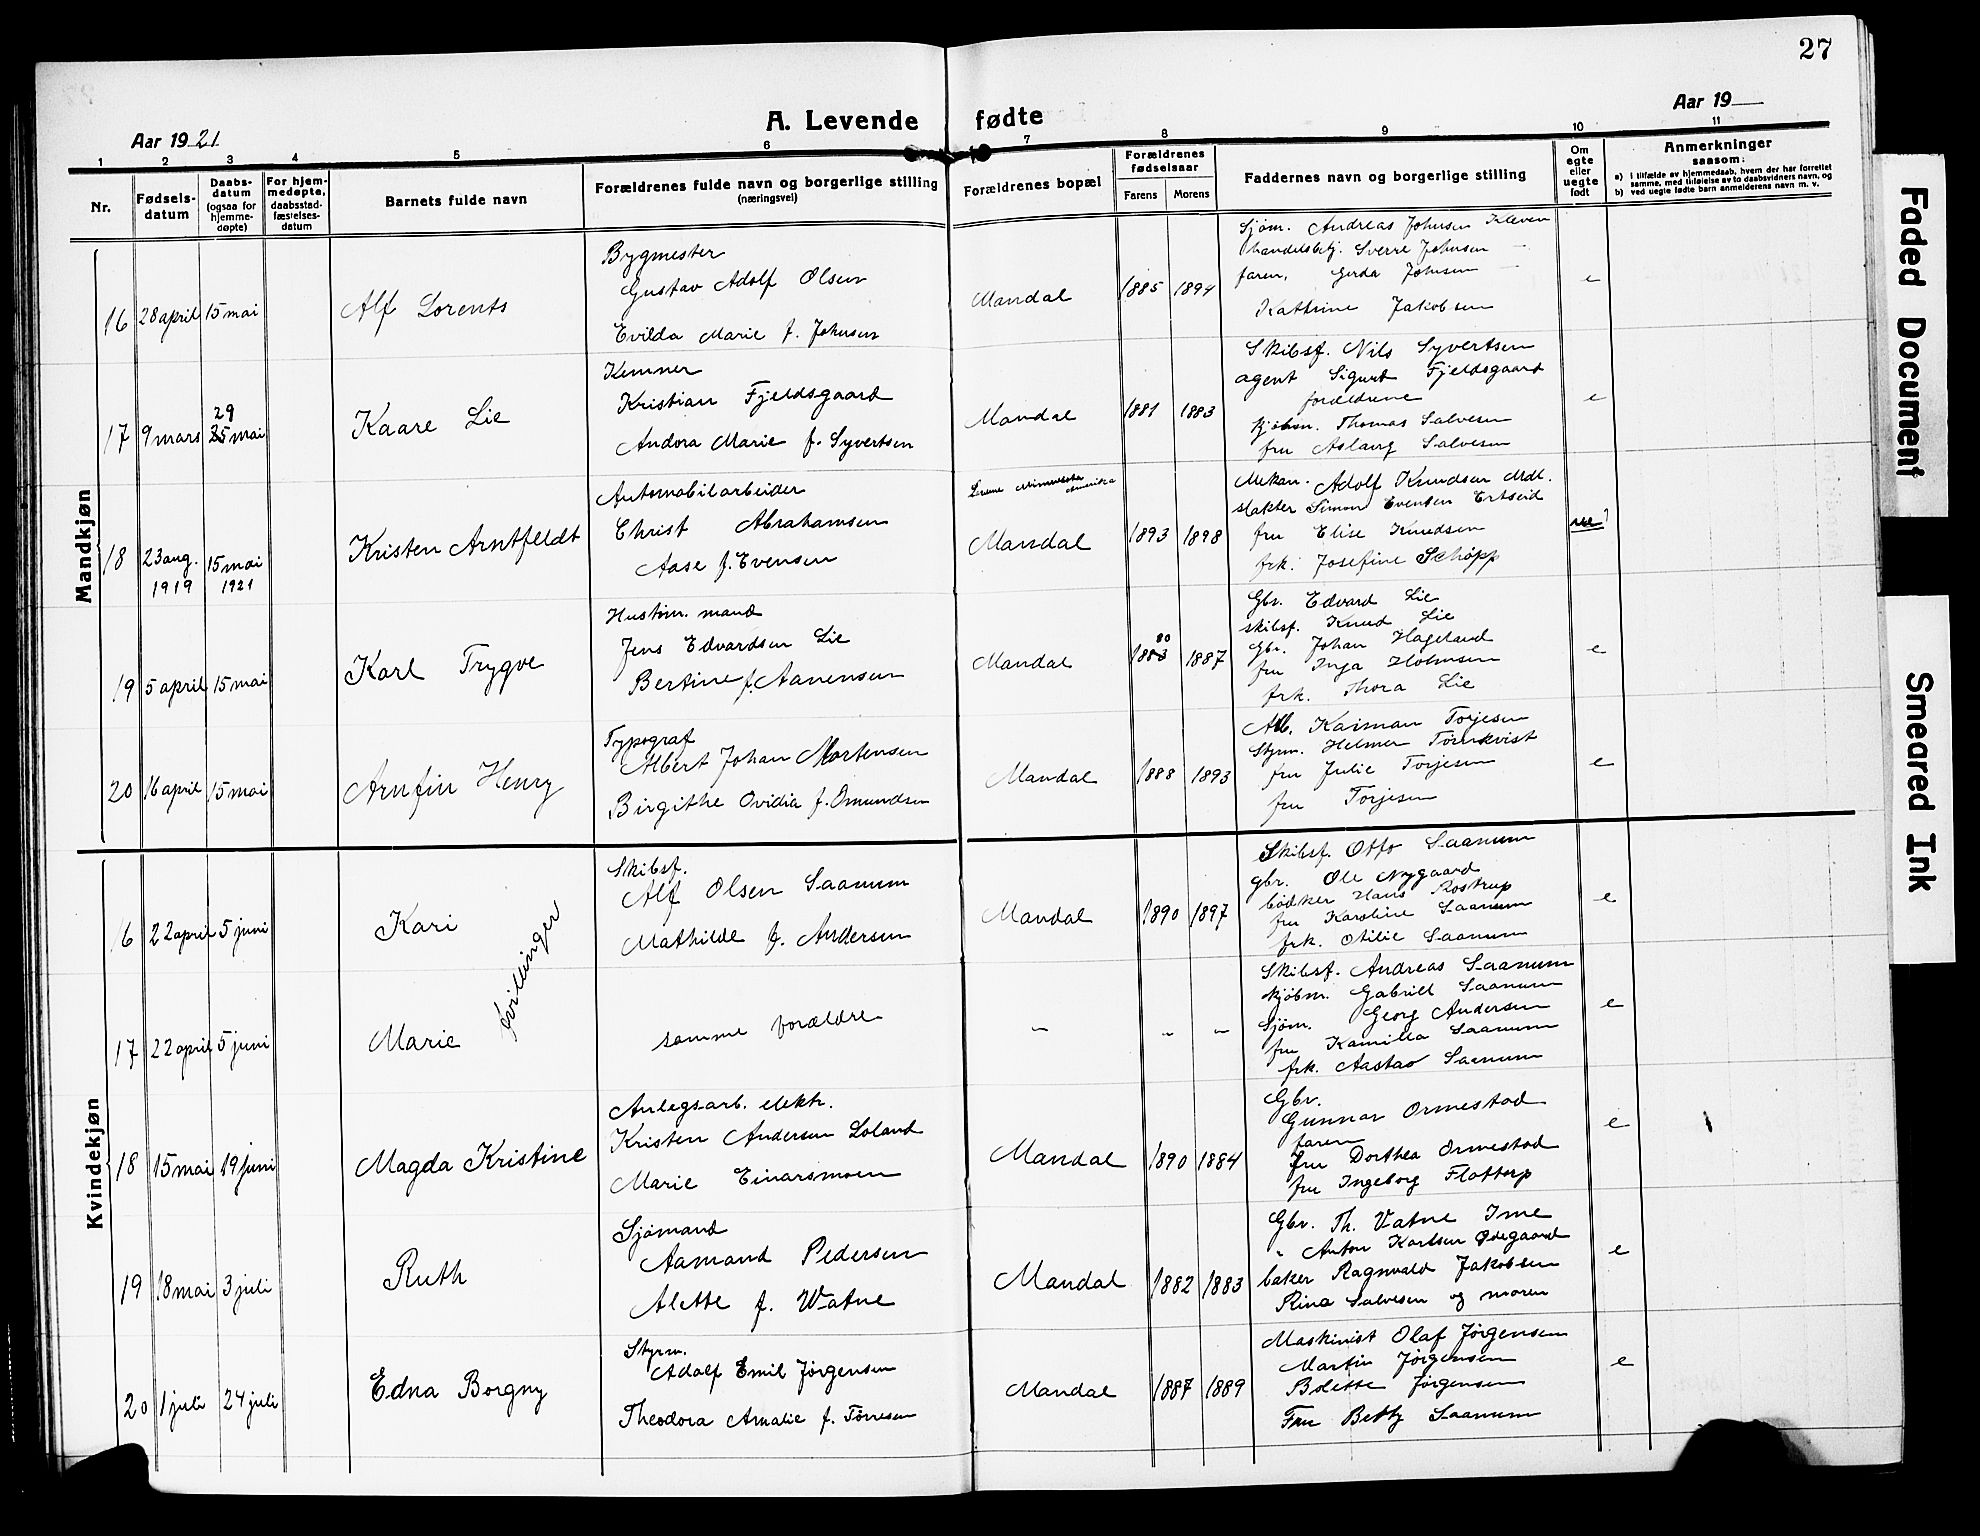 27
A. Levende fødte
Aar 1921
Aar 19
1 2 3 4 5 6 7 8 9 10 11
Nr.
Fødsels-
datum
Daabs-
datum
(ogsaa for
hjemme-
døpte)
For hjem-
medøpte,
daabsstad-
fæstelses-
datum
Barnets fulde navn
Forældrenes fulde navn og borgerlige stilling
(næringsvei)
Forældrenes bopæl
Forældrenes
fødselsaar
Farens Morens
Faddernes navn og borgerlige stilling
Om
egte
eller
uegte
født
Anmerkninger
saasom:
a) i tilfælde av hjemmedaab, hvem der har forrettet
samme, med tilføielse av to daabsvidners navn, og
b) ved uegte fødte barn anmelderens navn m. v.
Mandkjøn
16 28 april 15 mai
Alf Lorents
Bygmester
Gustav Adolf Olsen
Evilda Marie f. Johnsen
Mandal
1885 1894
Sjøm. Andreas Johnsen Kleven
handelsbetj. Sverre Johnsen –
faren, Gerda Johnsen –
Kathrine Jakobsen
e
17 9 mars 29 mai
Kaare Lie
Kemner
Kristian Fjeldsgaard
Andora Marie f. Syvertsen
Mandal
1881 1883
Skibsf. Nils Syvertsen
agent Sigurd Fjeldsgaard
forældrene
kjøbm. Thomas Salvesen
fru Aslaug Salvesen
e
18 23 aug. 1919 15 mai 1921
Kristen Arntfeldt
Automobilarbeider
Christ Abrahamsen
Aase f. Evensen
Amerika
Mandal
1893 1898
Mekan. Adolf Knudsen Mdl.
slakter Simon Evensen Ertseid
fru Elise Knudsen
frk. Josefine Schøpp
ue!
19 5 april 15 mai
Karl Trygve
Hustøm. mand
Jens Edvardsen Lie
Bertine f. Aanensen
Mandal
80
1883 1887
Gbr. Edvard Lie
skibsf. Knud Lie
Gbr. Johan Hageland
fru Inga Holmsen
frk. Thora Lie
e
20 16 april 15 mai
Arnfin Henry
Typograf
Albert Johan Mortensen
Birgithe Ovidia f. Omundsen
Mandal
1888 1893
Arb. Kaiman Torjesen
Styrm. Helmer Tørnkvist
fru Julie Torjesen
fru Torjesen
e
Kvindekjøn
16 22 april 5 juni
Kari
tvillinger
Skibsf.
Alf Olsen Saanum
Mathilde f. Andersen
Mandal
1890 1897
Skibsf. Otto Saanum
gbr. Ole Nygaard
bødker Hans Rostrup
fru Karoline Saanum
frk. Otilie Saanum
e
17 22 april 5 juni
Marie
samme forældre
– – –
Skibsf. Andreas Saanum
kjøbm. Gabriell Saanum
Sjøm. Georg Andersen
fru Kamilla Saanum
frk. Aastao Saanum
e
18 15 mai 19 juni
Magda Kristine
Anlegsarb. elektr.
Kristen Andersen Loland
Marie Einarsmoen
Mandal
1890 1884
Gbr.
Gunnar Ormestad
faren
fru Dorthea Ormestad
fru Ingeborg Flottorp
e
19 18 mai 3 juli
Ruth
Sjømand
Aamand Pedersen
Alette f. Vatne
Mandal
1882 1883
Gbr. Th. Vatne Ime
" Anton Karlsen Ødegaard
baker Ragnvald Jakobsen
Rina Salvesen og moren
e
20 1 juli 24 juli
Edna Borgny
Styrm.
Adolf Emil Jørgensen
Theodora Amalie f. Tørresen
Mandal
1887 1889
Maskinist Olaf Jørgensen
Martin Jørgensen
Bolette Jørgensen
Fru Betty Saanum
e
Faded Document
Smeared Ink